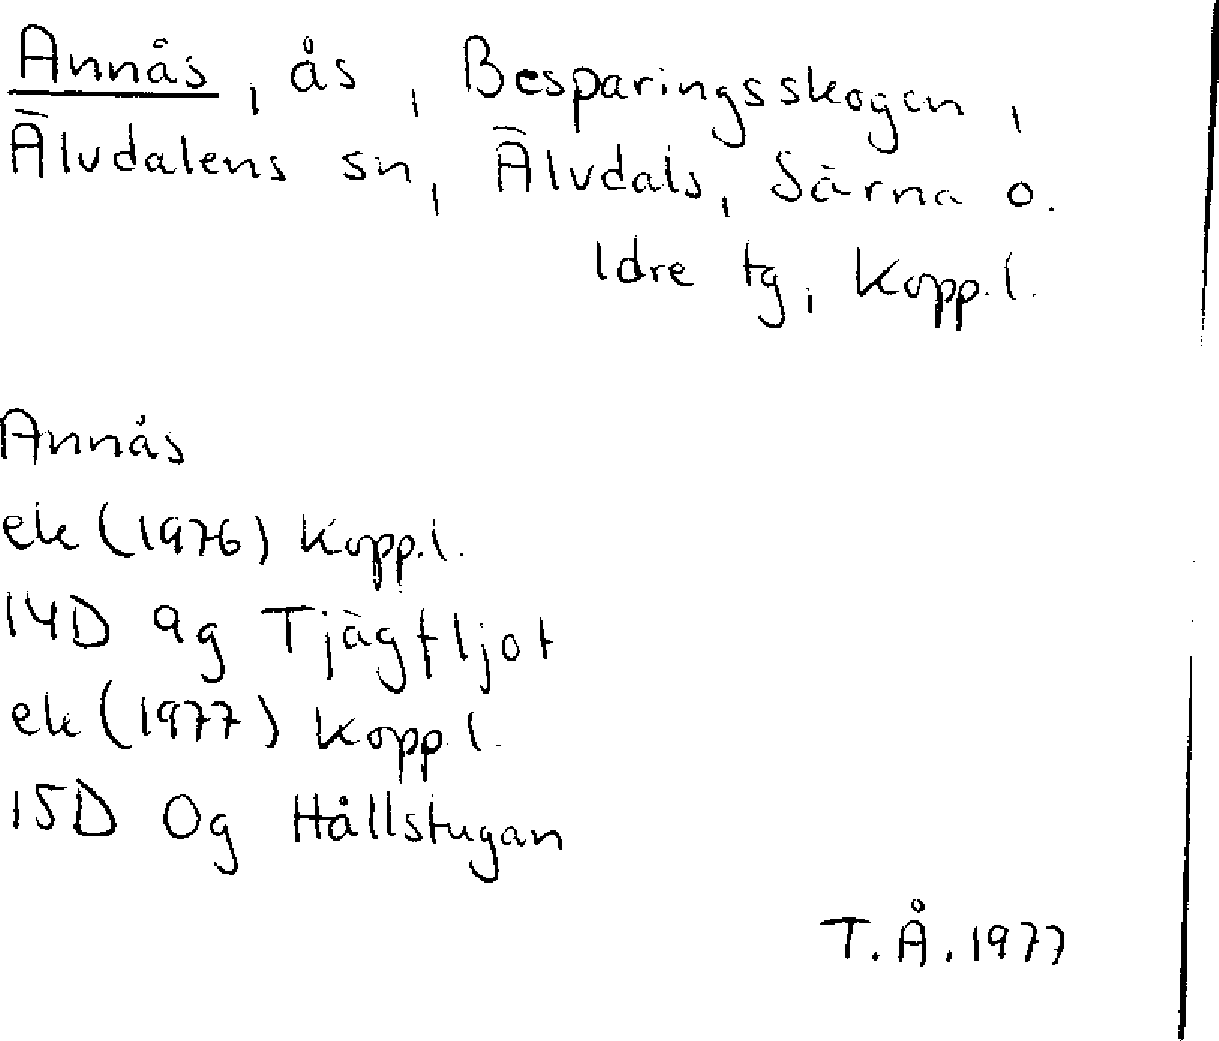 Annås, ås, Besparingsskogen,
Älvdalens sn, Älvdals, Särna o.
Idre tg, Kopp.l.
Annås
ek (1976) Kopp.l.
14D 9g Tjägfljot
ek (1977) Kopp.l.
15D 0g Hållstugan
T.Å. 1977